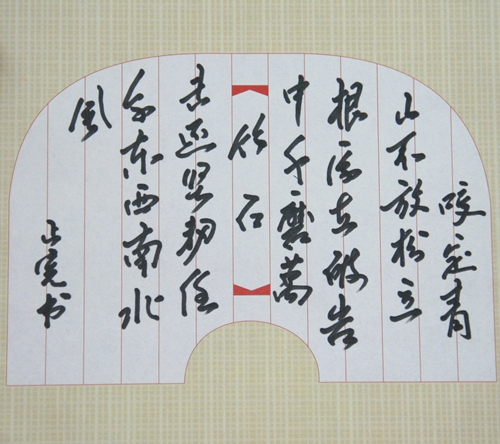 咬定青
山不放松立
根原在破岩
中千磨萬
竹石
击还坚韧任
尔东西南北
风
宽书